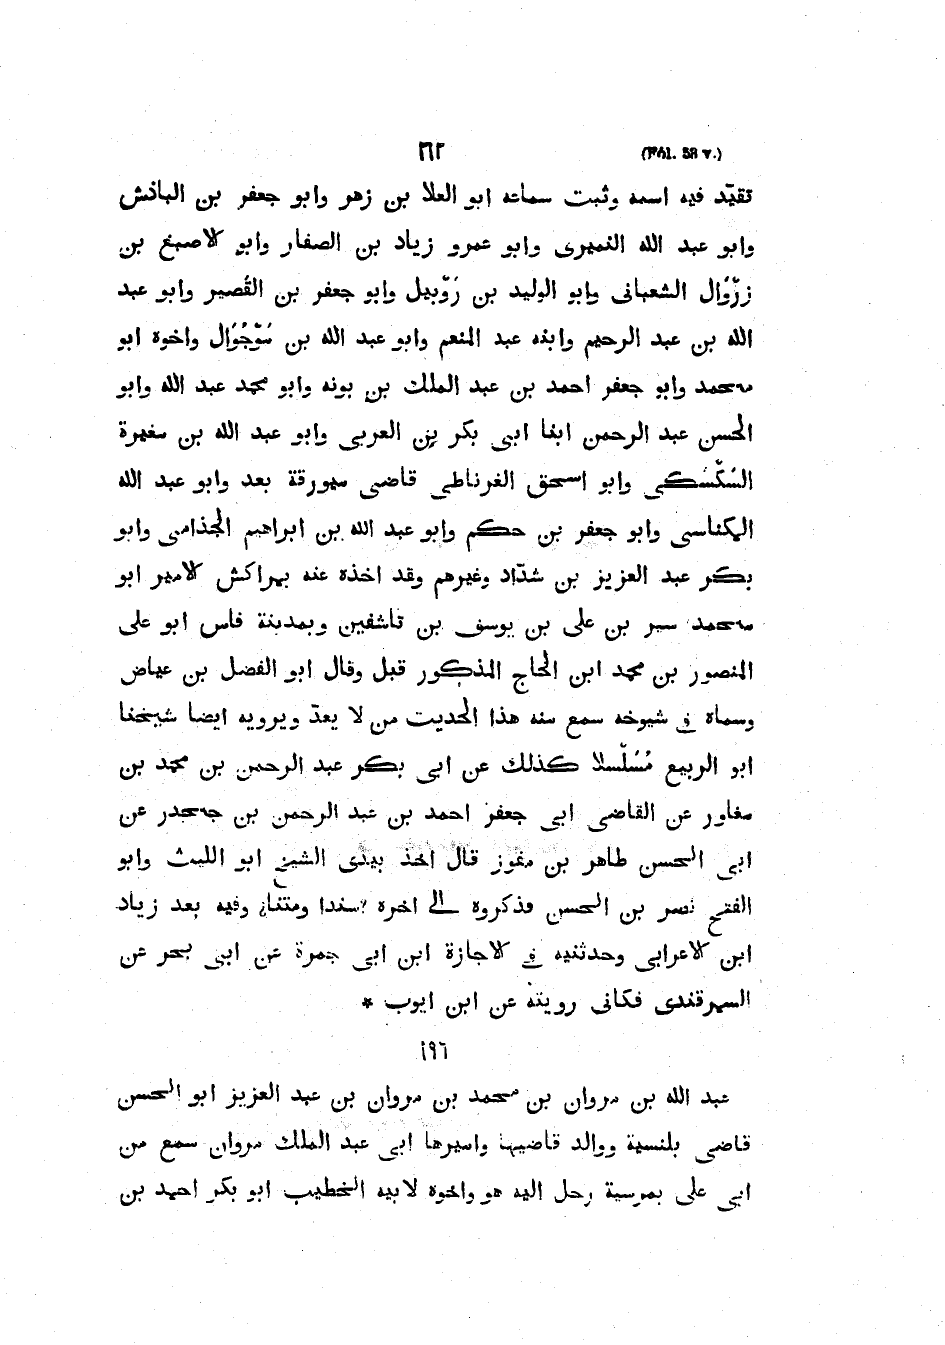 (Fol. 58 v.) ٢١٢
تقيّد فيه اسمه وثبت سماعه ابو العلا بن زهر وابو جعفر بن الباذش
وابو عبد الله النميرى وابو عمرو زياد بن الصفار وابو الاصبغ بن
زرّوال الشعبانى وابو الوليد بن رَوّبيل وابو جعفر بن القُصير وابو عبد
الله بن عبد الرحيم وابنه عبد المنعم وابو عبد الله بن مُوّجُوَال واخوه ابو
محمد وابو جعفر احمد بن عبد الملك بن بونه وابو محمد عبد الله وابو
الحسن عبد الرحمن ابنا ابى بكر بن العربى وابو عبد الله بن مغيرة
السَّكْسَكى وابو اسحق الغرناطى قاضى ميورقة بعد وابو عبد الله
المكناسى وابو جعفر بن حكم وابو عبد الله بن ابراهيم الجذامى وابو
بكر عبد العزيز بن شدّاد وغيرهم وقد اخذه عنه بمراكش الامير ابو
محمد سير بن على بن يوسف بن تاشفين وبمدينة فاس ابو على
المنصور بن محمد ابن الحاج المذكور قبل وقال ابو الفضل بن عياض
وسماه فى شيوخه سمع منه هذا الحديث من لا يعدّ ويرويه ايضا شيخنا
ابو الربيع مُسَلْسلا كذلك عن ابى بكر عبد الرحمن بن محمد بن
مغاور عن القاضى ابى جعفر احمد بن عبد الرحمن بن جحدر عن
ابى الحسن طاهر بن مفوز قال اخذ بيدى الشيخ ابو الليث وابو
الفتح نصر بن الحسن فذكروه الى اخره سندا ومتنا وفيه بعد زياد
ابن الاعرابى وحدثنيه فى الاجازة ابن ابى جمرة عن ابى بحر عن
السمرقندى فكانى رويته عن ابن ايوب *
١٩٦
عبد الله بن مروان بن محمد بن مروان بن عبد العزيز ابو الحسن
قاضى بلنسية ووالد قاضيها واميرها ابى عبد الملك مروان سمع من
ابى على بمرسية رحل اليه هو واخوه لابيه الخطيب ابو بكر احمد بن